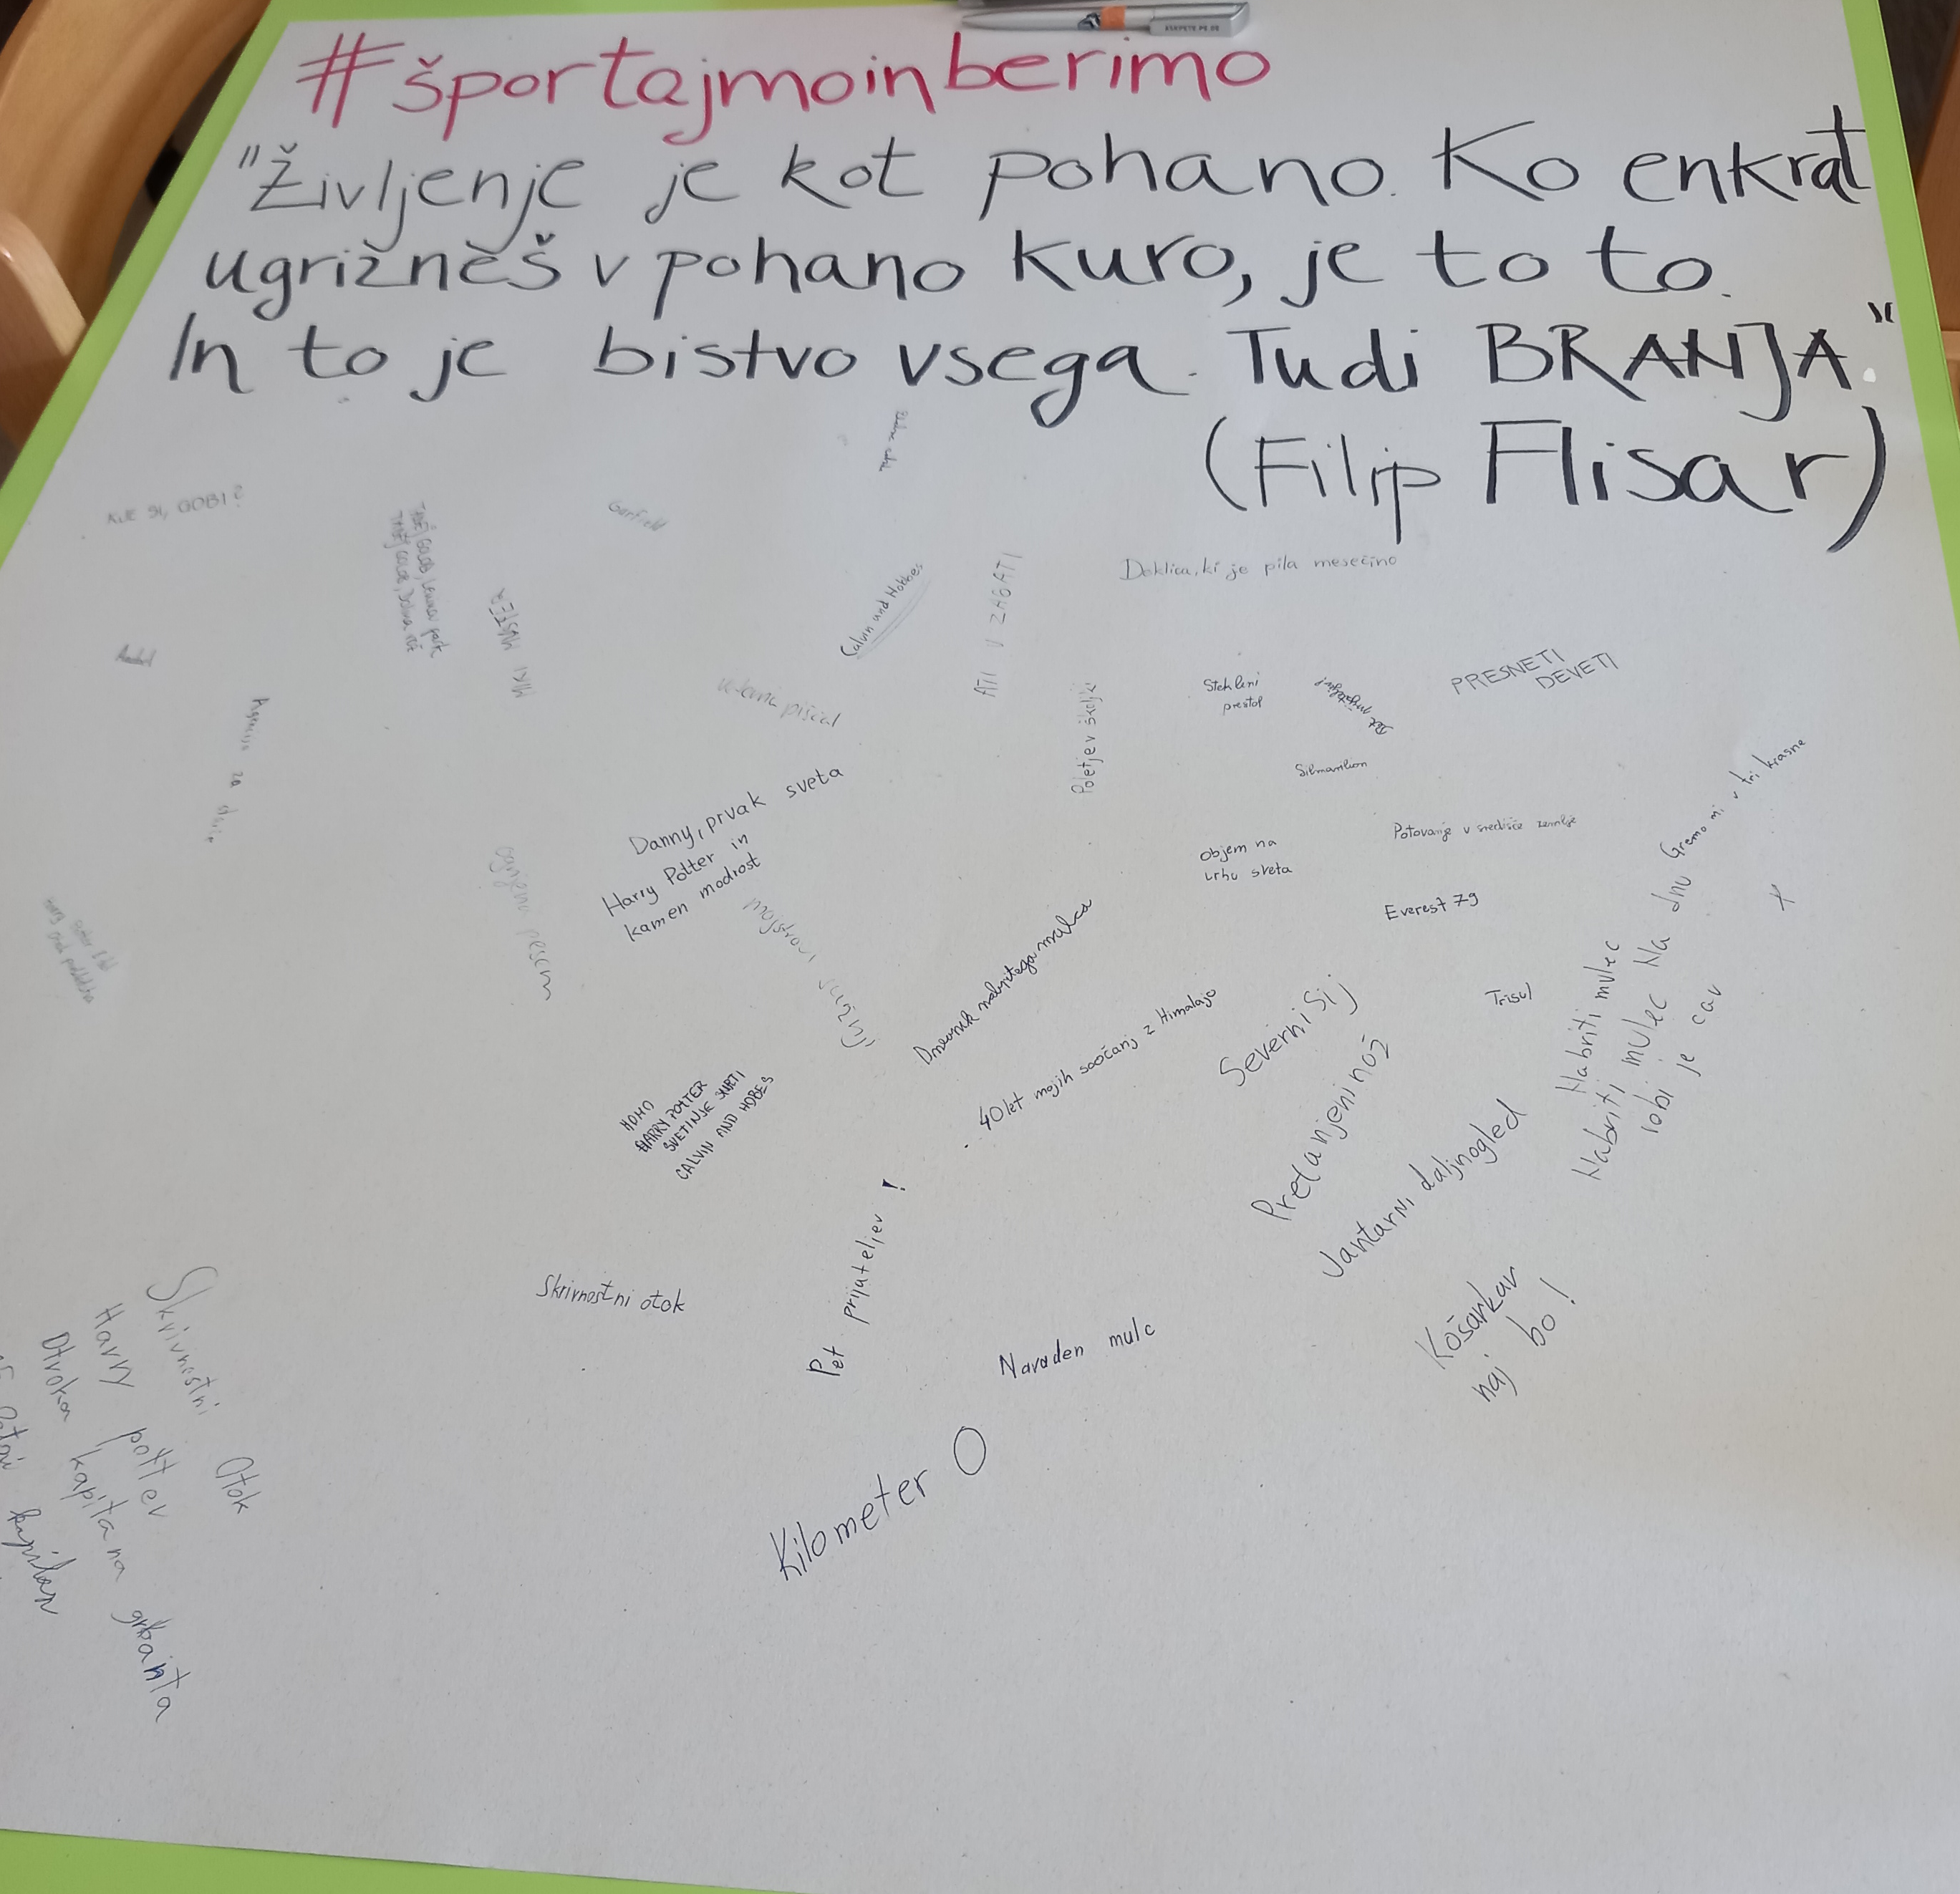 #športajmoinberimo
"Življenje je kot pohano. Ko enkrat
ugrizneš v pohano kuro, je to to.
In to je bistvo vsega. Tudi BRANJA."
(Filip Flisar)
KJE SI, GOBI?
Garfield
Calvin and Hobbes
ATI V ZAGATI
Deklica, ki je pila mesečino
MIKI MUSTER
Poletje v školjki
Stekleni
prestol
PRESNETI
DEVETI
Silmarilion
Danny, prvak sveta
Harry Potter in
kamen modrost
ognjena pesem
Južni
Objem na
vrhu sveta
Potovanje v središče zemlje
Gremo mi v tri krasne
Everest 79
Trisul
Dnevnik nabritega mulca
40 let mojih soočanj z Himalajo
Severni sij
Pretanjeni nož
Jantarni daljnogled
Nabriti mulec
Nabriti mulec na dnu
robi je car
HOHO
HARRY POTTER
SVETINJE SMRTI
CALVIN AND HOBES
Pet prijateljev!
Skrivnostni otok
Navaden mulc
Košarkar
naj bo!
Kilometer 0
Skrivnostni Otok
Harry potter
Otroka kapitana granta
kapitan